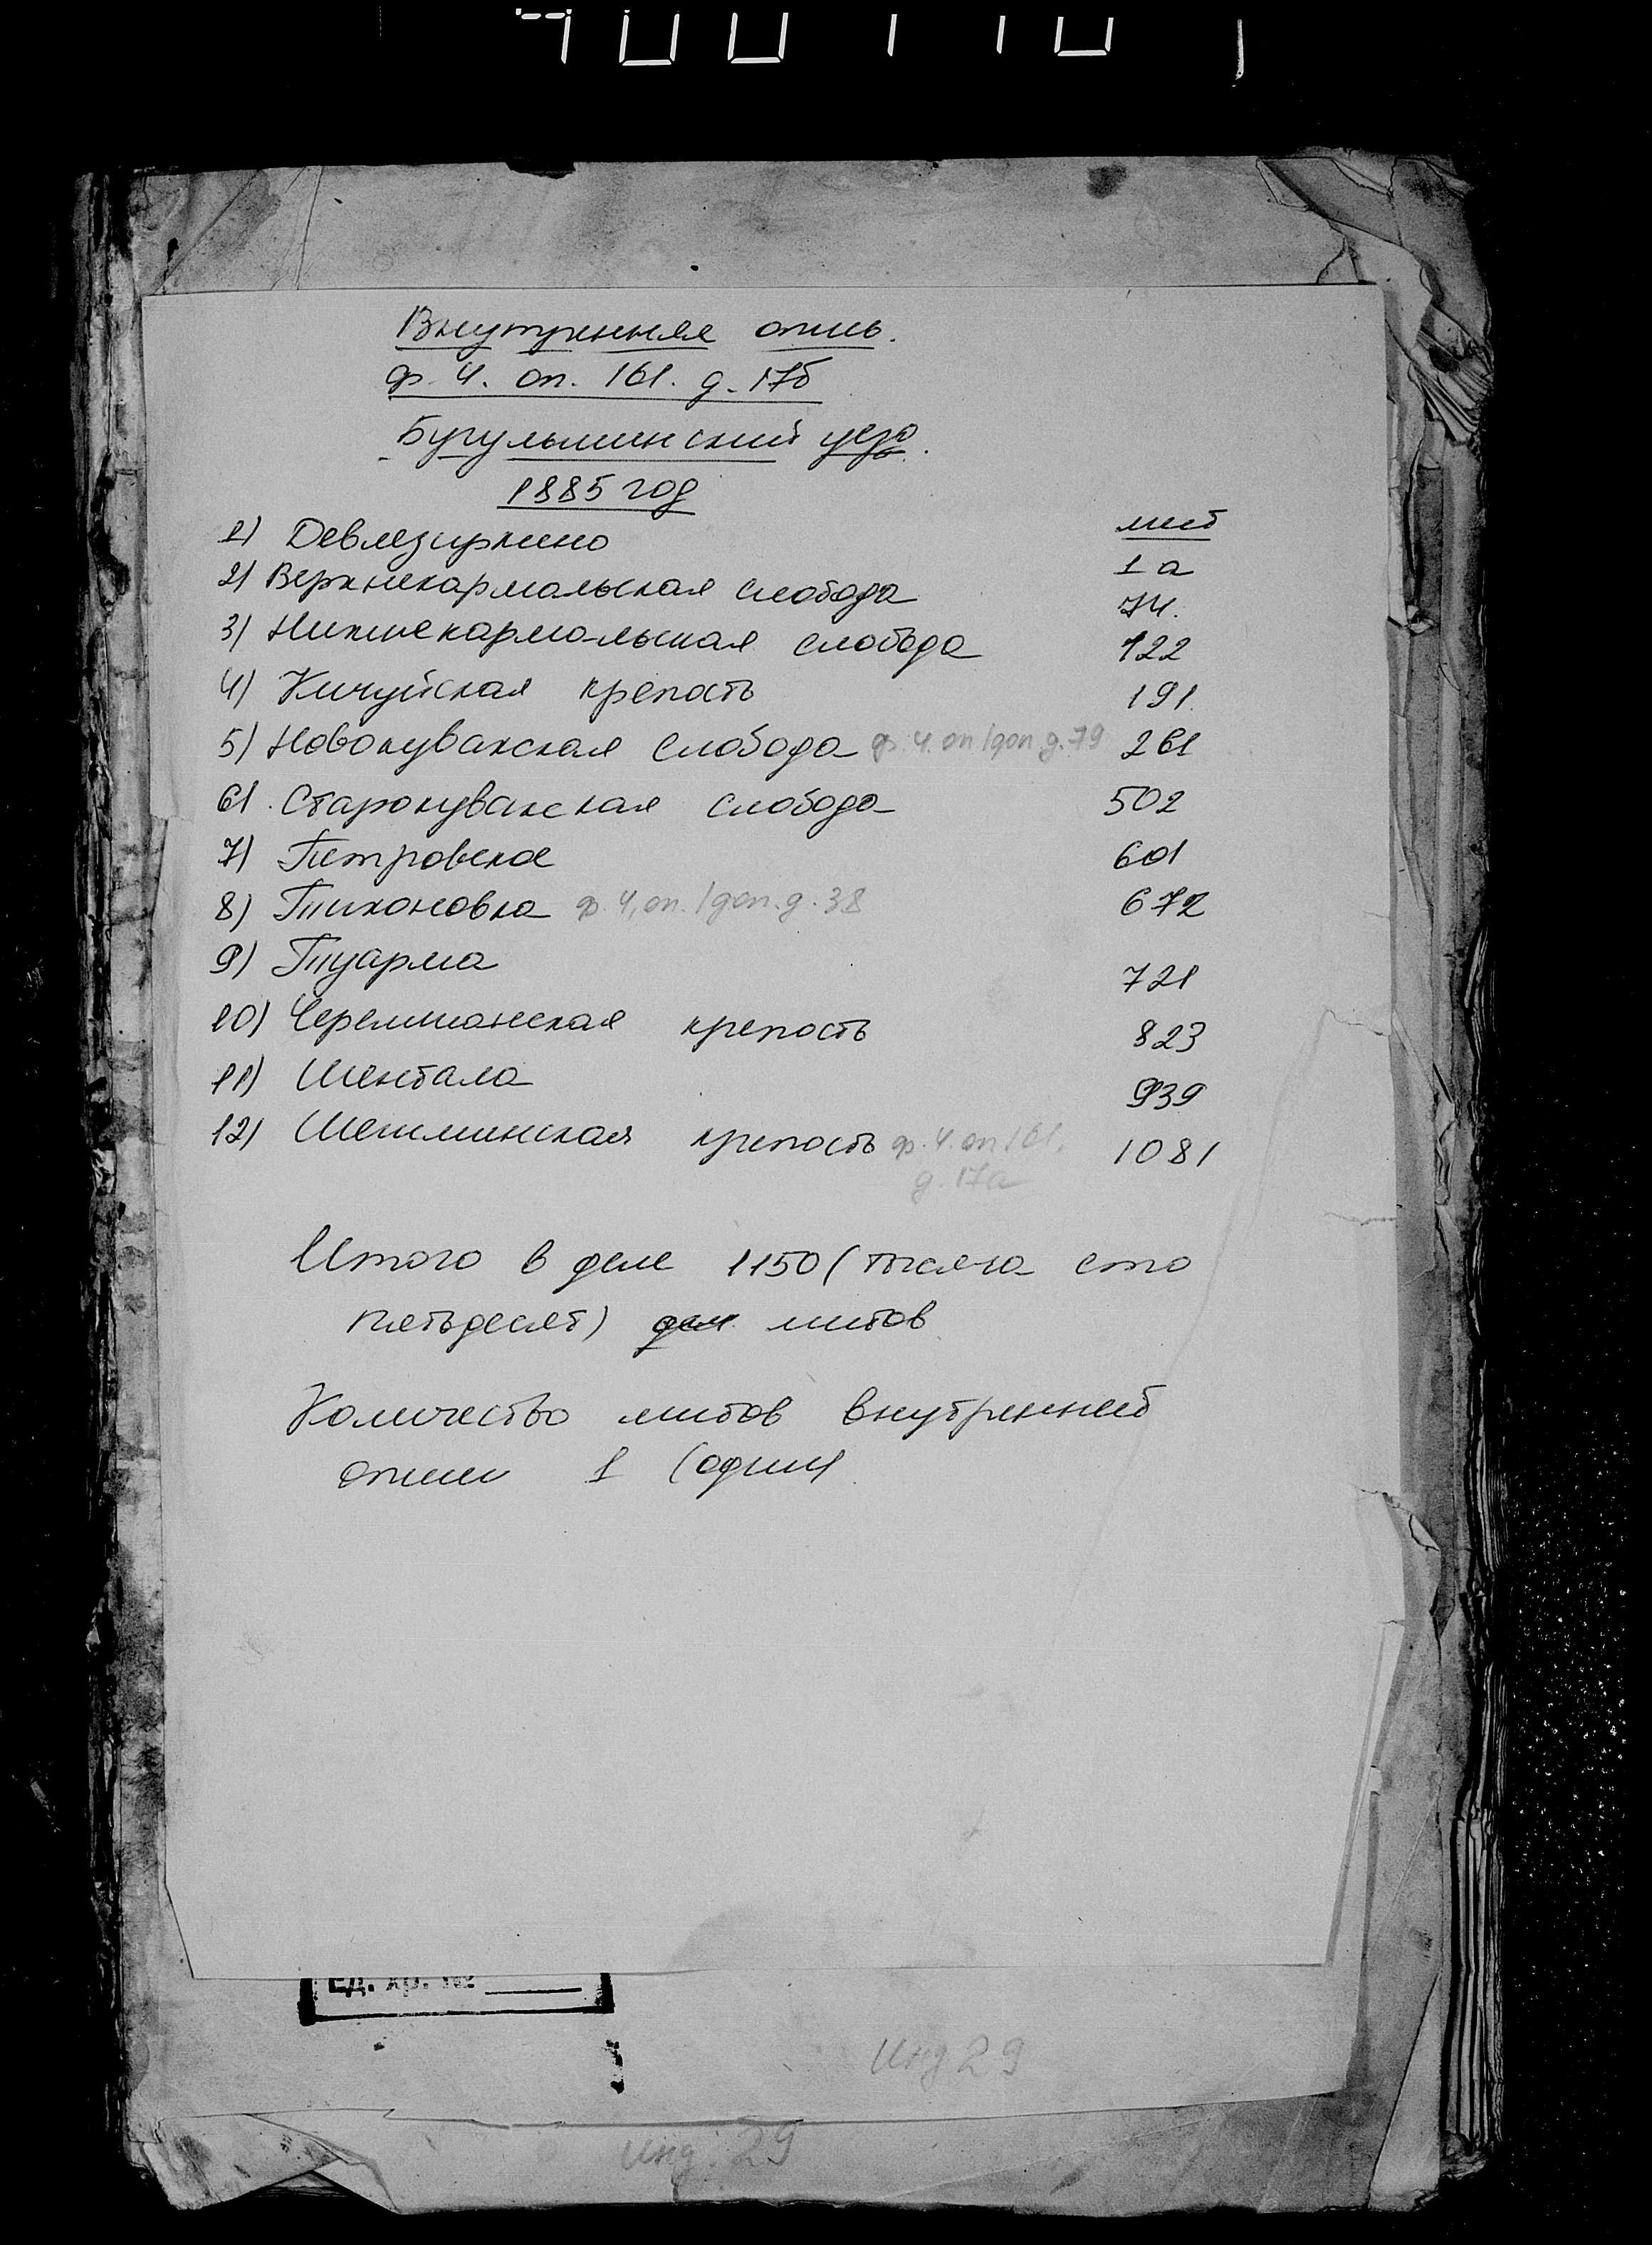 Внутренняя опись.
ф. 4. оп. 161. д. 17б
Бугульминский уезд.
1885 год
лист
1) Девлезеркино 1а
2) Верхнекармальская слобода 74.
3) Нижнекармальская слобода 122
4) Кичуйская крепость 191.
5) Новокувакская слобода ф. 4. оп 1доп д. 79 261
6) Старокувакская слобода 502
7) Петровское 601
8) Тихоновка ф. 4, оп. 1доп. д. 38 672
9) Туарма 721
10) Черемшанская крепость 823
11) Шентала 939
12) Шешминская крепость ф. 4. оп 161. 1081
д. 17а
Итого в деле 1150 (тысяча сто
пятьдесят) дел листов
Количество листов внутренней
описи 1 (один)
Ед. хр. №
Инд 29
Инд. 29